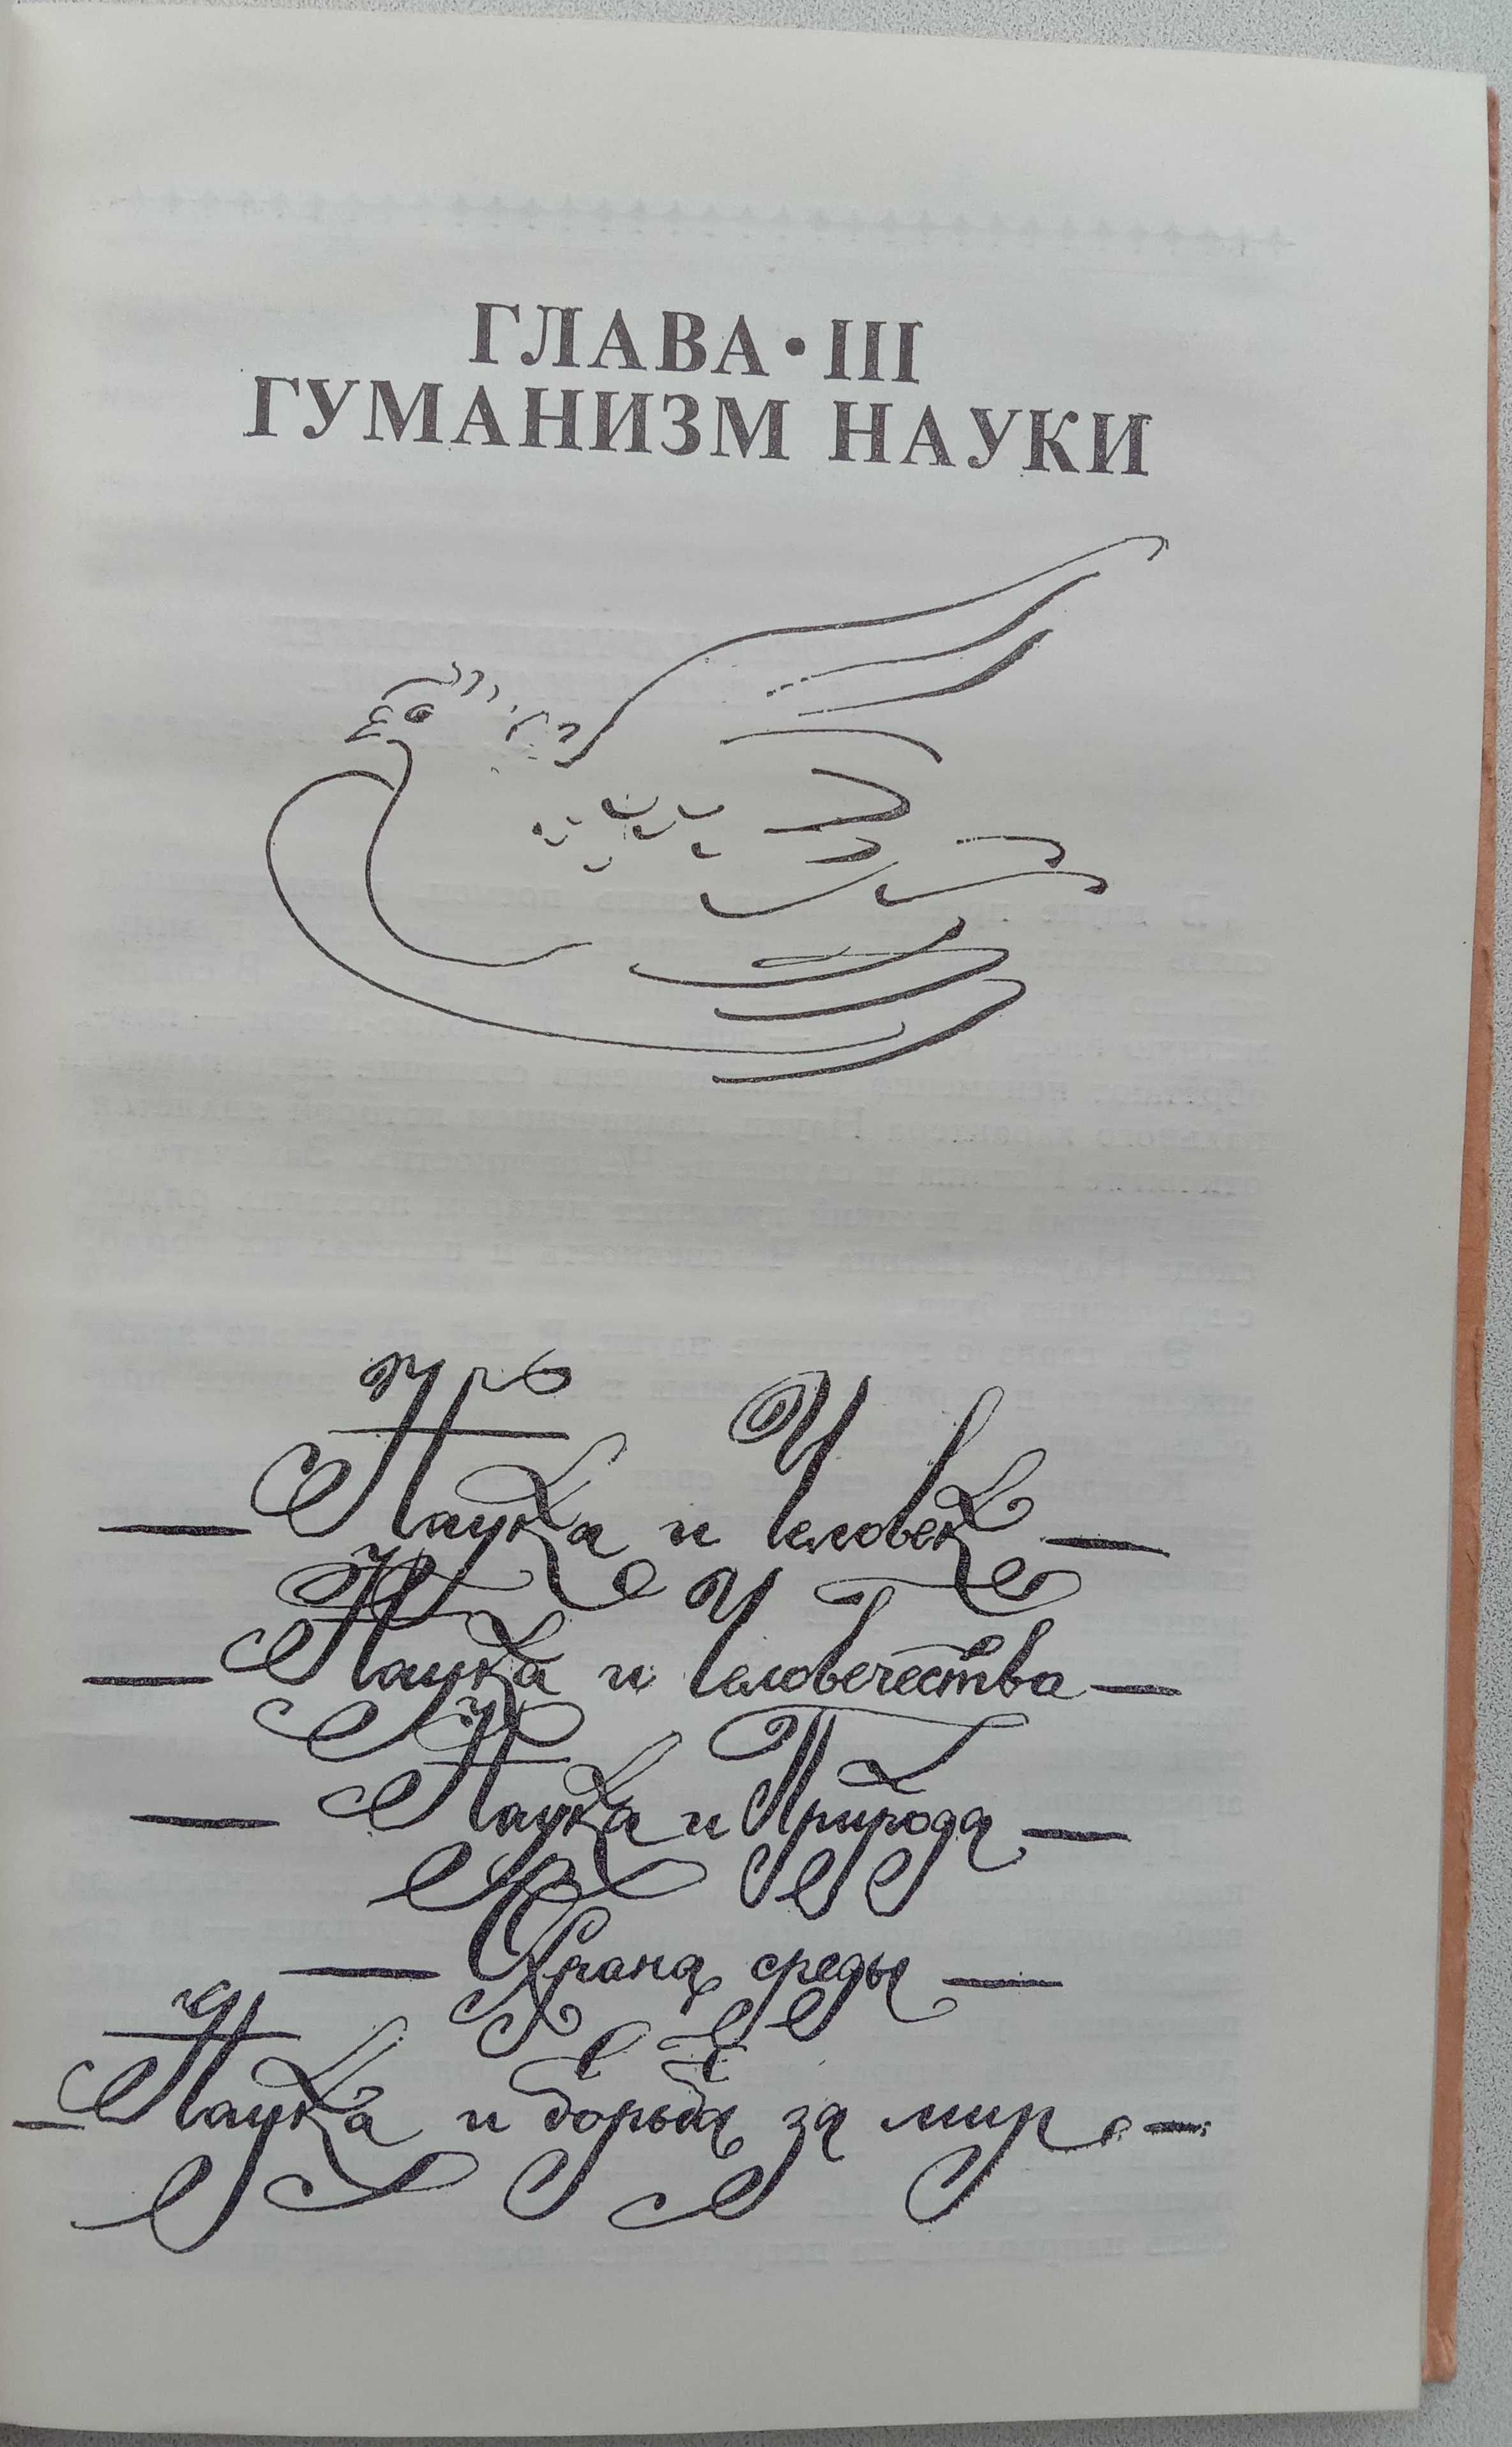 ГЛАВА • III
ГУМАНИЗМ НАУКИ
— Наука и Человек —
— Наука и Человечества —
— Наука и Природа —
— Охрана среды —
— Наука и борьба за мир. —